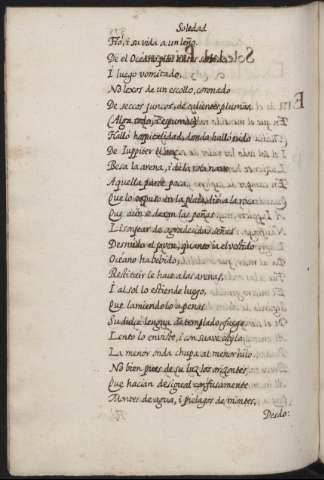 Soledad
Fió, i su vida a un leño.
De el Oceano pues antes sorbido,
I luego vomitado,
No lexos de un escollo, coronado
De seccos juncos, de calientes plumas,
(Alga todo, i espumas)
Halló hospitalidad, donde halló nido
De Iuppiter el ave.
Besa la arena, i de la rota nave
Aquella parte poca,
Que lo expuso en la plaia, dio a la roca;
Que aun se dexan las peñas
Lisonjear de agradecidas señas
Desnudo el joven, quanto ia el vestido
Oceano ha bebido,
Restituir le hace a las arenas,
I al sol lo estiende luego,
Que lamiendolo apenas
Su dulce lengua de templado fuego
Lento lo enviste, i con suave estylo
La menor onda chupa al menor hilo.
No bien pues de su luz los orizontes,
Que hacian desigual confusamente
Montes de agua, i pielagos de montes,
Desdo: